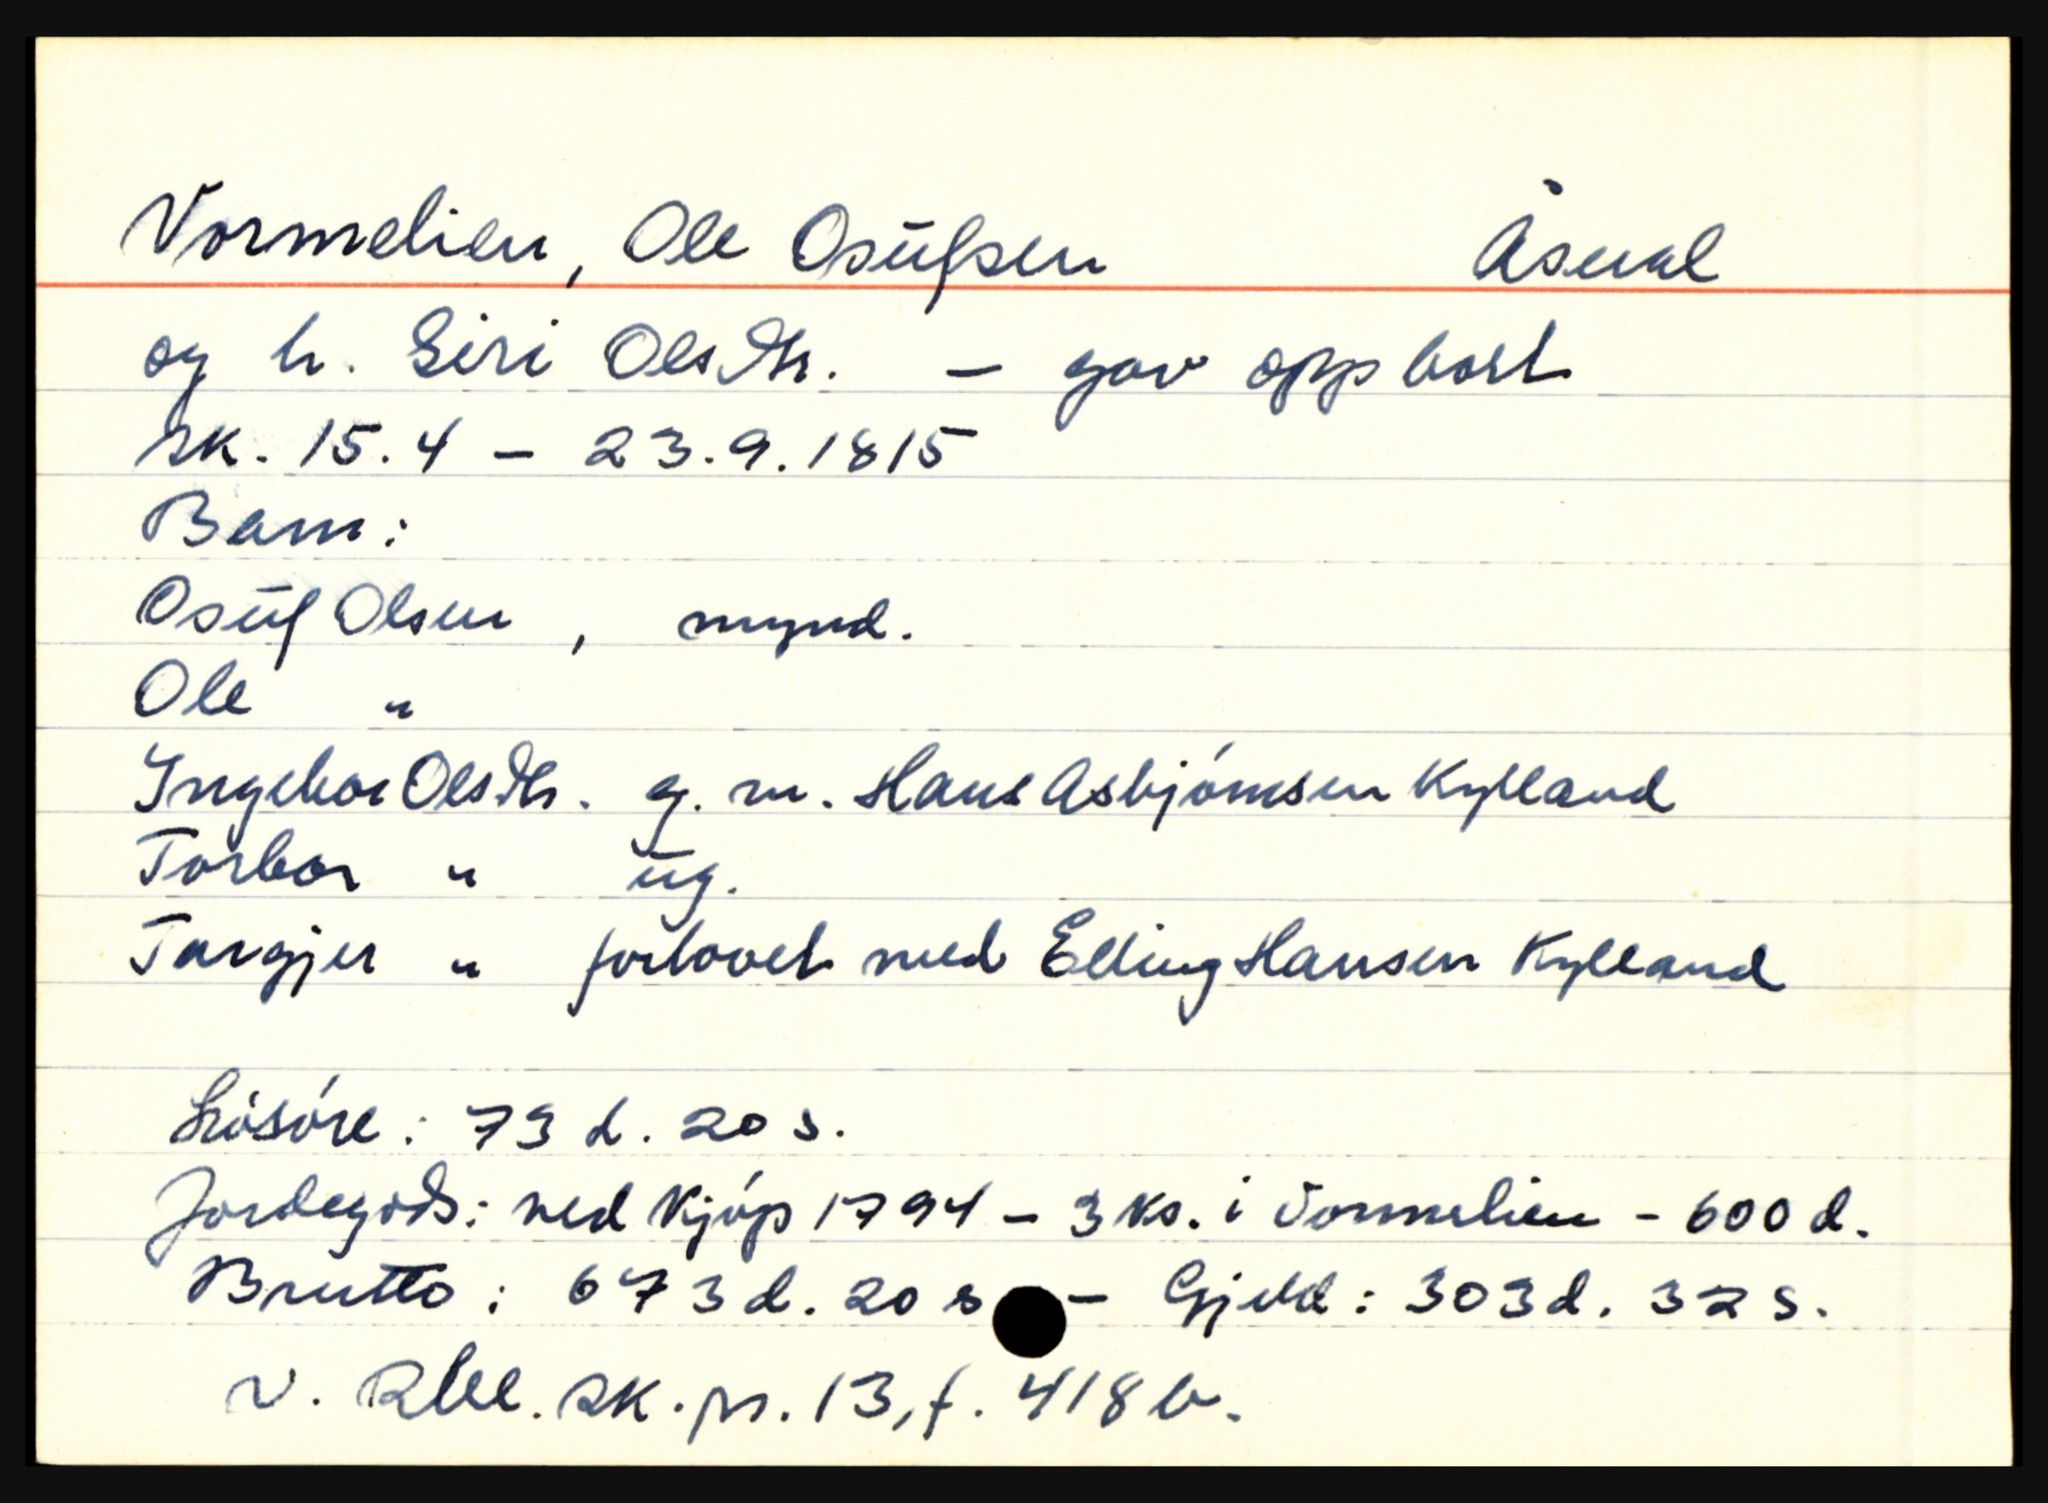 Vormelien, Ole Osūfsen Åseral
og h. Siri Olsdtr. - gav opp bort
sk. 15.4 - 23.9.1815
Barn:
Osūf Olsen, mynd.
Ole "
Ingebor Olsdtr. g. m. Hans Asbjórnsen Kylland
Torbor " ūg.
Targjer " forlovet med Elling Hansen Kylland
Lósóre: 73 d. 20 s.
Jordegods: ved Kjóp 1794 - 3 ks. i Vormelien - 600 d.
Brutto: 673 d. 20 s - Gjeld: 303 d. 32 s.
v. Rbl. sk. pr. 13, f. 418 b.